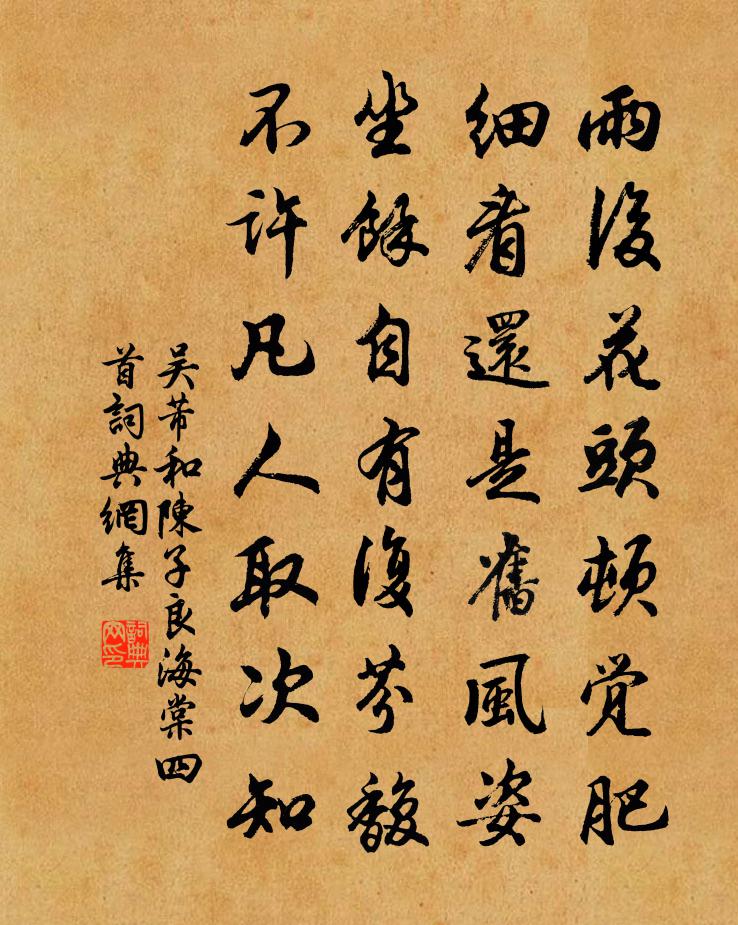 雨後花頭頓覚肥
細看還是舊風姿
坐餘自有復芬馥
不許凡人取次知
吴芾和陳子良海棠四
首詞典網集
詞典網印